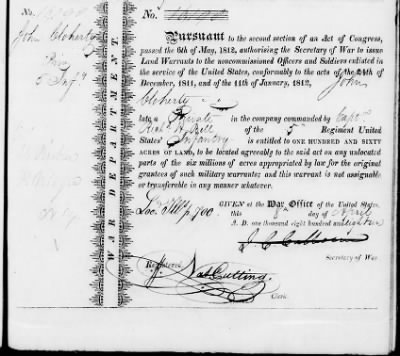 No.
John Cloherty
Priv
5 Inf.y
WAR DEPARTMENT.
No.
Pursuant to the second section of an Act of Congress,
passed the 6th of May, 1812, authorising the Secretary of War to issue
Land Warrants to the noncommissioned Officers and Soldiers enlisted in
the service of the United States, conformably to the acts of the 24th
December, 1811, and of the 11th of January, 1812, John
Cloherty
late a Private in the company commanded by Capt.
Bell of the 5 Regiment United
States' Infantry is entitled to ONE HUNDRED AND SIXTY
ACRES OF LAND, to be located agreeably to the said act on any unlocated
part of the six millions of acres appropriated by law for the original
grantees of such military warrants; and this warrant is not assignable
or transferable in any manner whatever.
GIVEN at the War Office of the United States
this day of April
A. D. one thousand eight hundred and
J. C. Calhoun
Secretary of War.
Registered
Nat Cutting
Clerk.